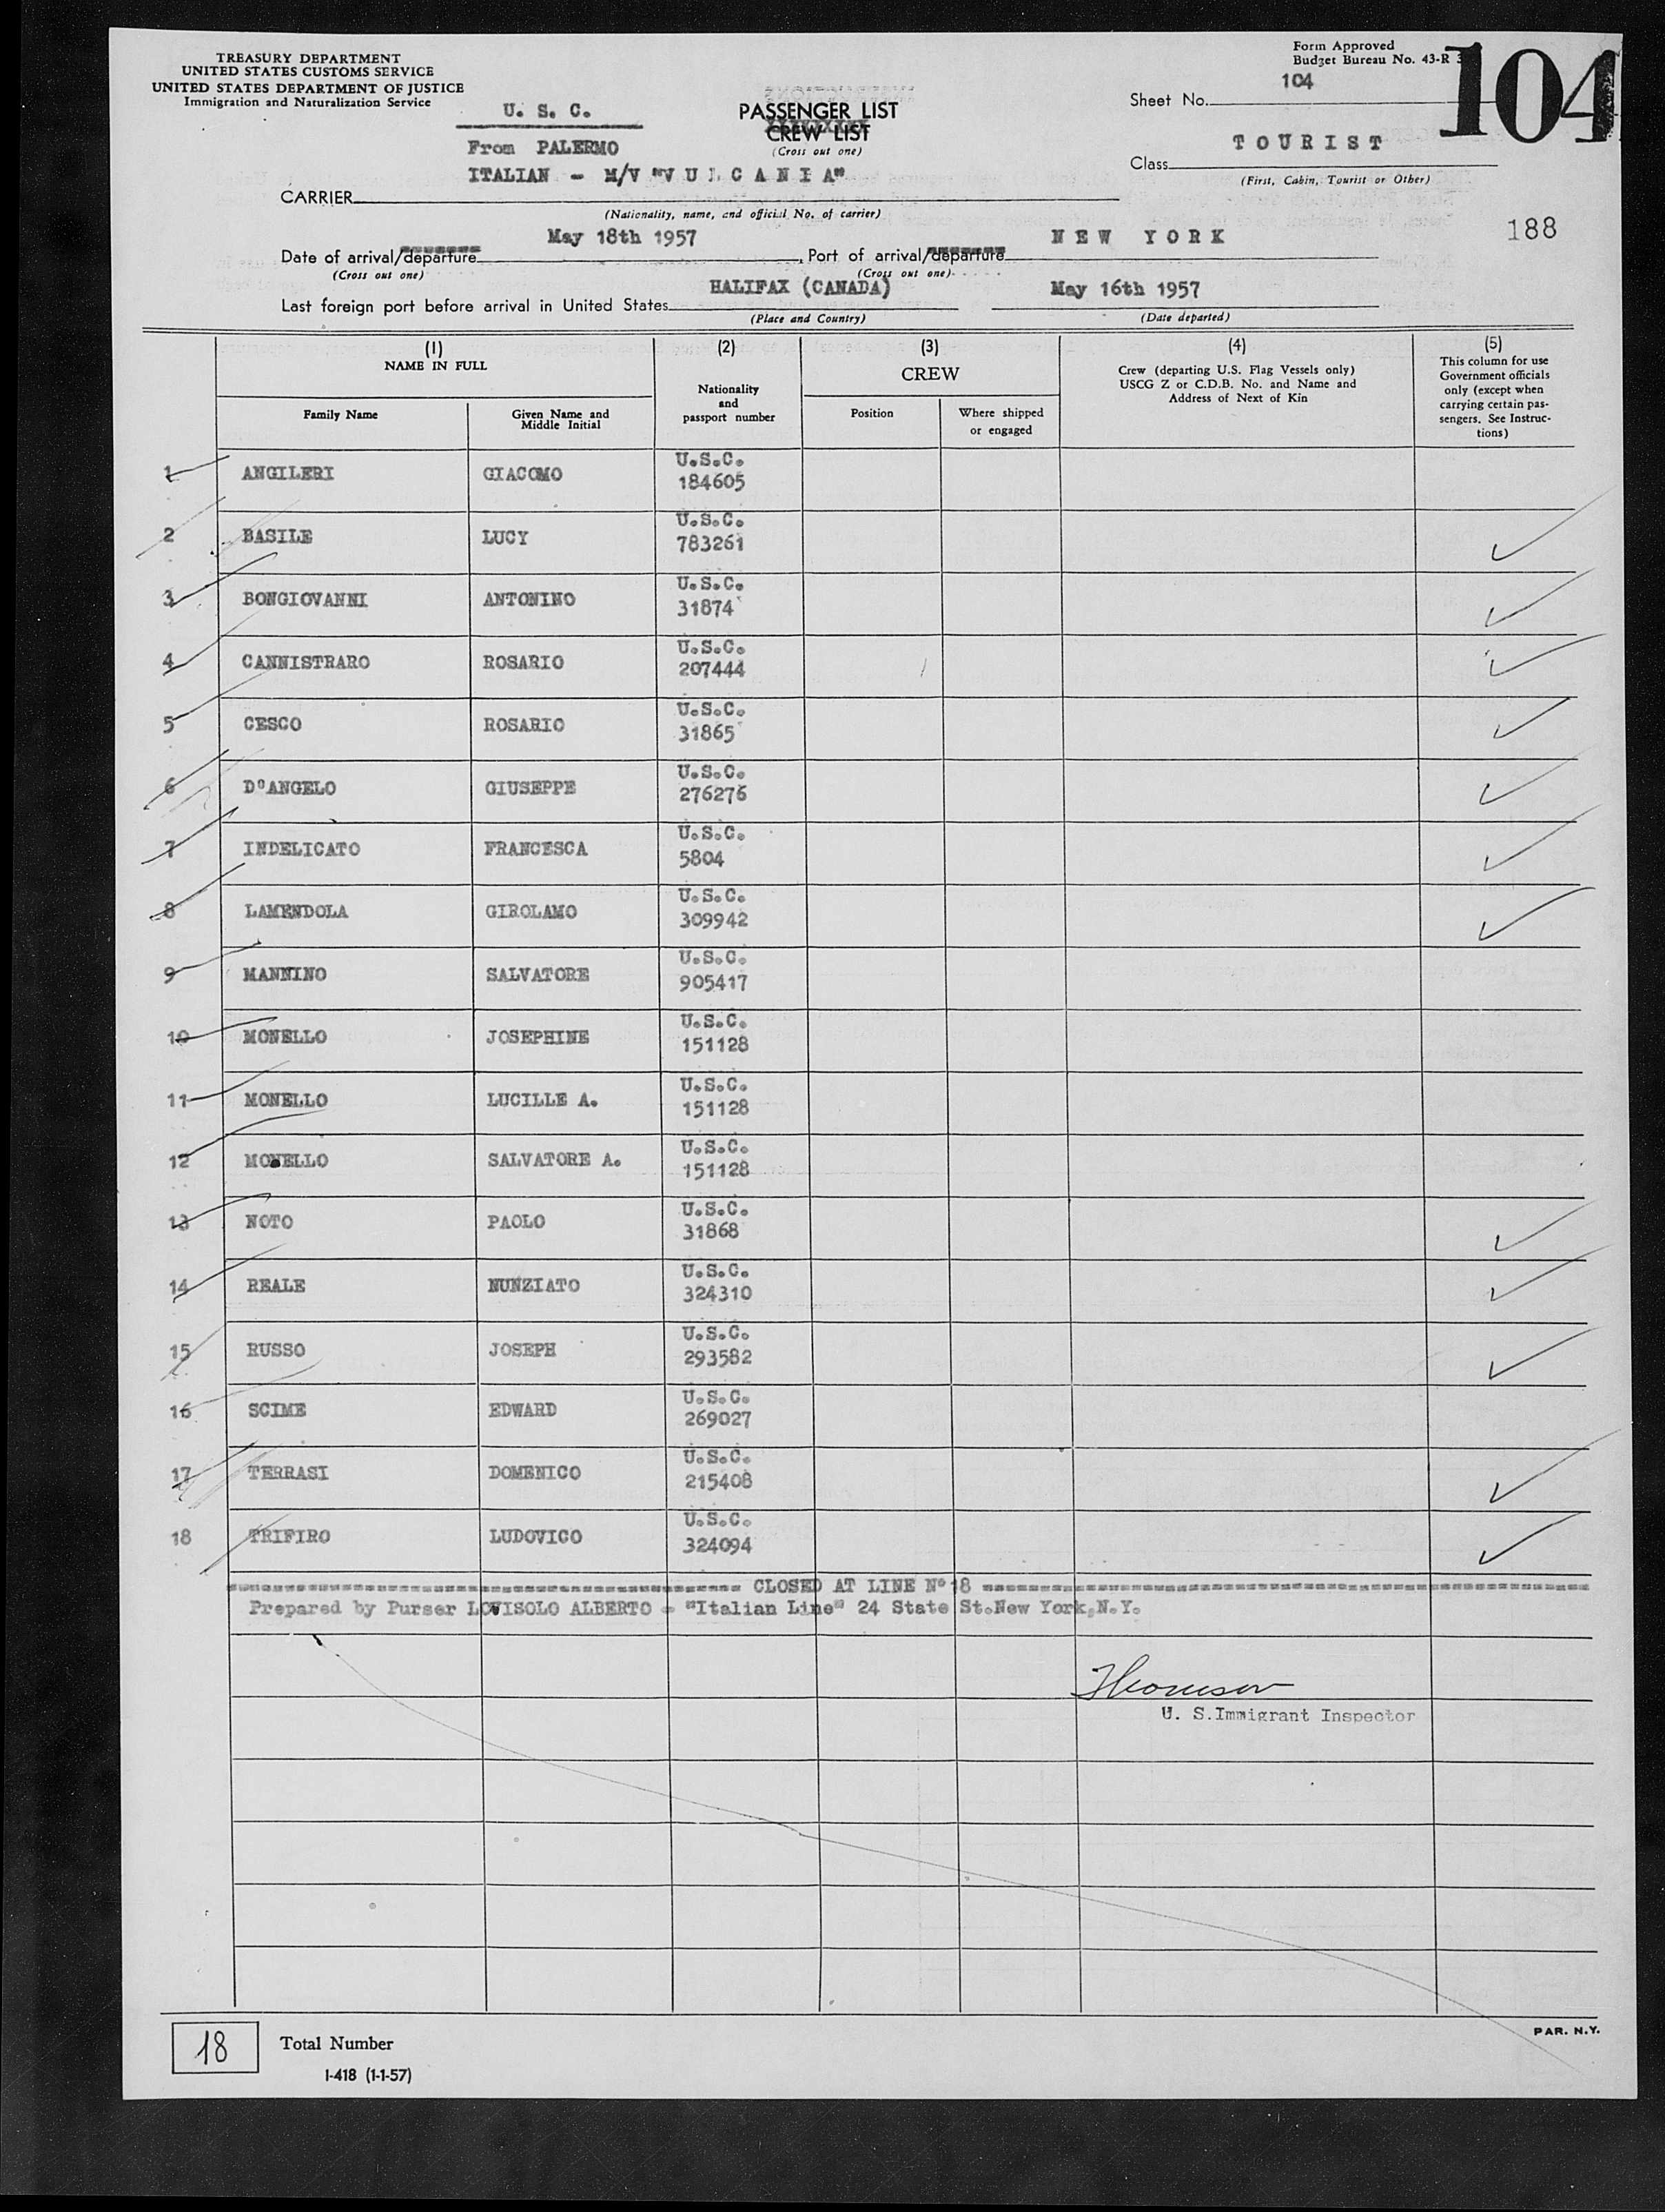 TREASURY DEPARTMENT
UNITED STATES CUSTOMS SERVICE
UNITED STATES DEPARTMENT OF JUSTICE
Immigration and Naturalization Service
U. S. C.
From PALERMO
PASSENGER LIST
CREW LIST
(Cross out one)
Form Approved
Budget Bureau No. 43-R
104
Sheet No. 104
Class TOURIST
(First, Cabin, Tourist or Other)
CARRIER ITALIAN - M/V "VULCANIA"
(Nationality, name, and official No. of carrier)
188
Date of arrival/departure May 18th 1957, Port of arrival/departure NEW YORK
(Cross out one) (Cross out one)
Last foreign port before arrival in United States HALIFAX (CANADA) May 16th 1957
(Place and Country) (Date departed)
(1) NAME IN FULL
Family Name
Given Name and Middle Initial
(2) Nationality and passport number
(3) CREW
Position
Where shipped or engaged
(4) Crew (departing U.S. Flag Vessels only) USCG Z or C.D.B. No. and Name and Address of Next of Kin
(5) This column for use Government officials only (except when carrying certain passengers. See Instructions)
1 ANGILERI GIACOMO U.S.C. 184605
2 BASILE LUCY U.S.C. 783261
3 BONGIOVANNI ANTONINO U.S.C. 31874
4 CANNISTRARO ROSARIO U.S.C. 207444
5 CESCO ROSARIO U.S.C. 31865
6 D'ANGELO GIUSEPPE U.S.C. 276276
7 INDELICATO FRANCESCA U.S.C. 5804
8 LAMENDOLA GIROLAMO U.S.C. 309942
9 MANNINO SALVATORE U.S.C. 905417
10 MONELLO JOSEPHINE U.S.C. 151128
11 MONELLO LUCILLE A. U.S.C. 151128
12 MONELLO SALVATORE A. U.S.C. 151128
13 NOTO PAOLO U.S.C. 31868
14 REALE NUNZIATO U.S.C. 324310
15 RUSSO JOSEPH U.S.C. 293582
16 SCIME EDWARD U.S.C. 269027
17 TERRASI DOMENICO U.S.C. 215408
18 TRIFIRO LUDOVICO U.S.C. 324094
CLOSED AT LINE N° 18
Prepared by Purser LOVISOLO ALBERTO - "Italian Line" 24 State St.New York,N.Y.
U. S.Immigrant Inspector
18 Total Number
I-418 (1-1-57)
PAR. N.Y.